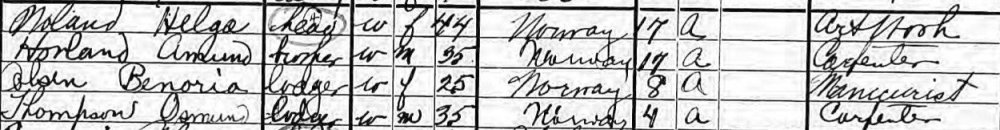 Noland Helga head w f 44 Norway 17 a Art Work
Hovland Amund w m 35 Norway 17 a Carpenter
Olsen Benoria lodger w f 25 Norway 8 a Manicurist
Thompson Osmund lodger w m 35 Norway 4 a Carpenter